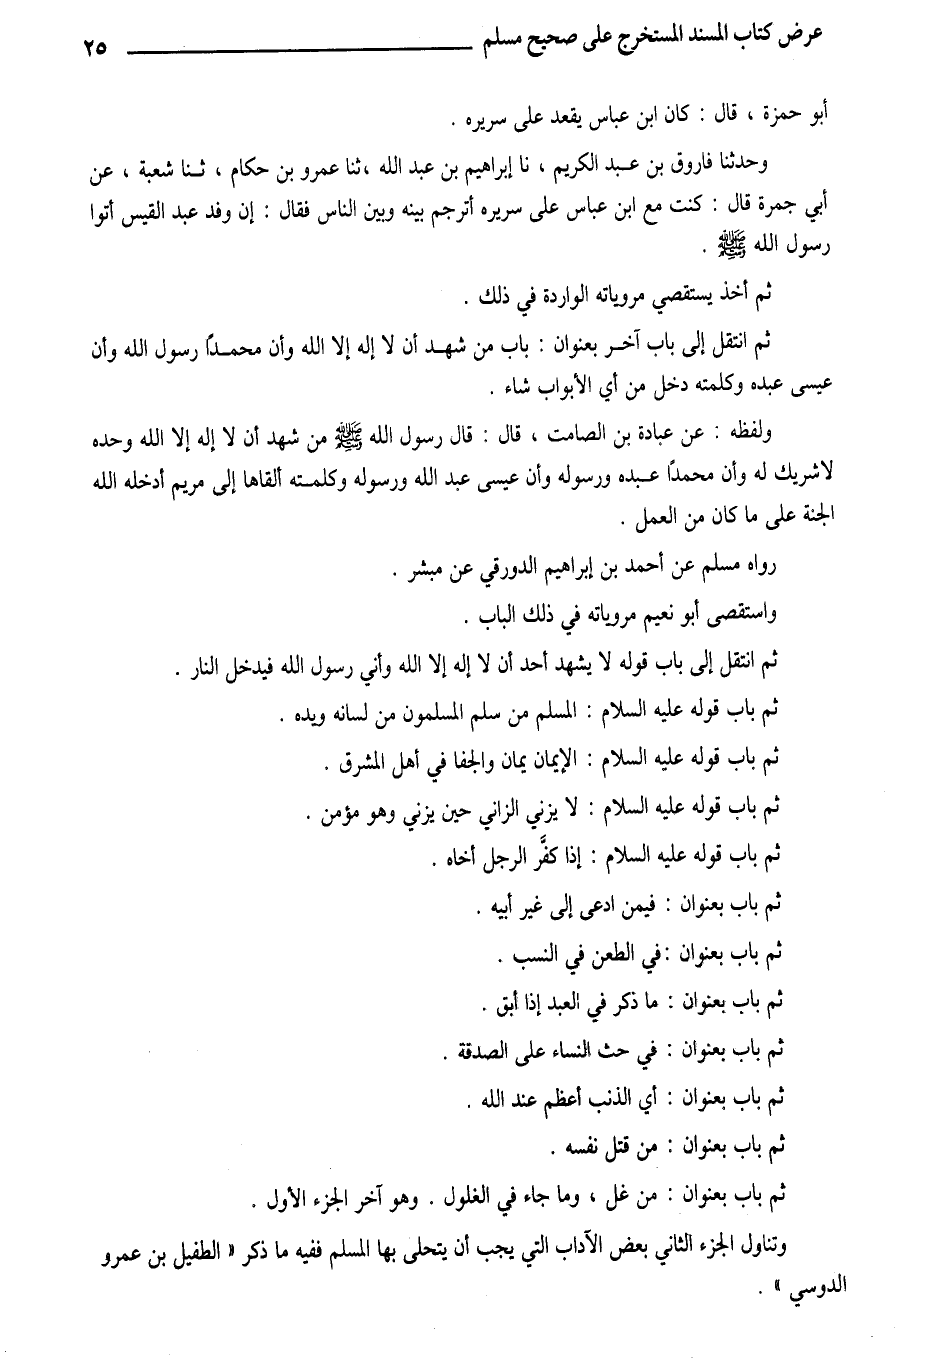 عرض كتاب المسند المستخرج على صحيح مسلم ٢٥
أبو حمزة ، قال : كان ابن عباس يقعد على سريره .
وحدثنا فاروق بن عبد الكريم ، نا إبراهيم بن عبد الله ،ثنا عمرو بن حكام ، ثنا شعبة ، عن
أبي جمرة قال : كنت مع ابن عباس على سريره أترجم بينه وبين الناس فقال : إن وفد عبد القيس أتوا
رسول الله ﷺ .
ثم أخذ يستقصي مروياته الواردة في ذلك .
ثم انتقل إلى باب آخر بعنوان : باب من شهد أن لا إله إلا الله وأن محمدًا رسول الله وأن
عيسى عبده وكلمته دخل من أي الأبواب شاء .
ولفظه : عن عبادة بن الصامت ، قال : قال رسول الله ﷺ من شهد أن لا إله إلا الله وحده
لاشريك له وأن محمدًا عبده ورسوله وأن عيسى عبد الله ورسوله وكلمته ألقاها إلى مريم أدخله الله
الجنة على ما كان من العمل .
رواه مسلم عن أحمد بن إبراهيم الدورقي عن مبشر .
واستقصى أبو نعيم مروياته في ذلك الباب .
ثم انتقل إلى باب قوله لا يشهد أحد أن لا إله إلا الله وأني رسول الله فيدخل النار .
ثم باب قوله عليه السلام : المسلم من سلم المسلمون من لسانه ويده .
ثم باب قوله عليه السلام : الإيمان يمان والجفا في أهل المشرق .
ثم باب قوله عليه السلام : لا يزني الزاني حين يزني وهو مؤمن .
ثم باب قوله عليه السلام : إذا كفَّر الرجل أخاه .
ثم باب بعنوان : فيمن ادعى إلى غير أبيه .
ثم باب بعنوان :في الطعن في النسب .
ثم باب بعنوان : ما ذكر في العبد إذا أبق .
ثم باب بعنوان : في حث النساء على الصدقة .
ثم باب بعنوان : أي الذنب أعظم عند الله .
ثم باب بعنوان : من قتل نفسه .
ثم باب بعنوان : من غل ، وما جاء في الغلول . وهو آخر الجزء الأول .
وتناول الجزء الثاني بعض الآداب التي يجب أن يتحلى بها المسلم ففيه ما ذكر « الطفيل بن عمرو
الدوسي » .